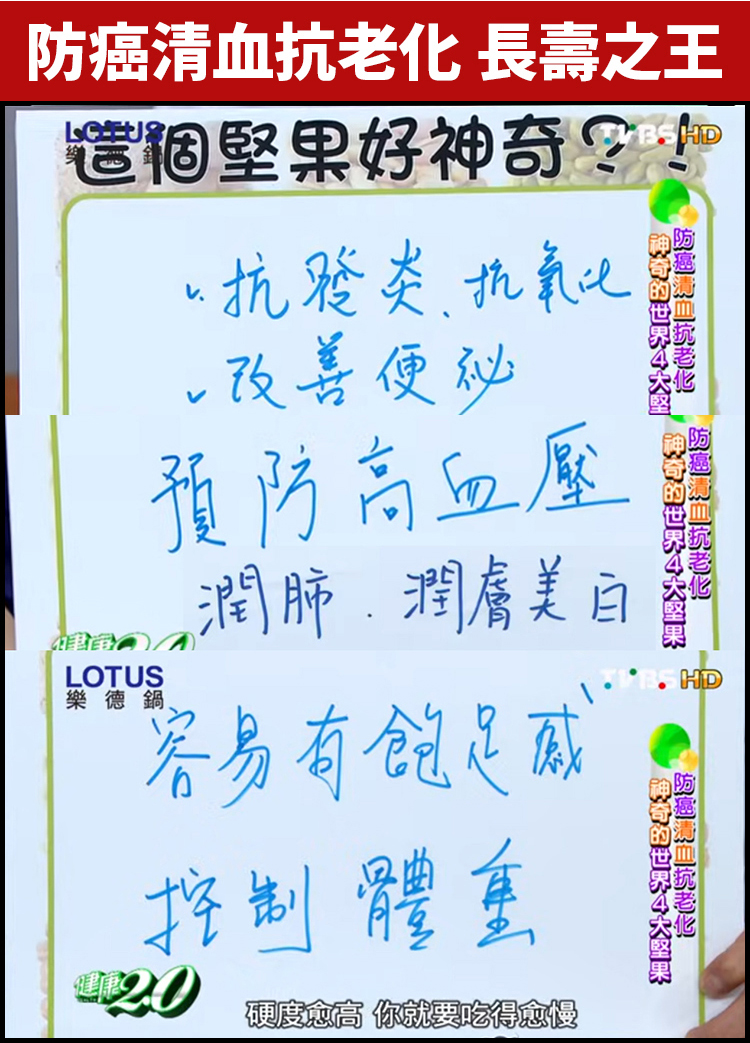 防癌清血抗老化 長壽之王
LOTUS
樂德鍋
TVBS HD
這個堅果好神奇?!
防癌清血抗老化
神奇的世界4大堅
抗發炎、抗氧化
改善便祕
預防高血壓
潤肺．潤膚美白
防癌清血抗老化
神奇的世界4大堅果
健康2.0
LOTUS
樂德鍋
TVBS HD
容易有飽足感
控制體重
防癌清血抗老化
神奇的世界4大堅果
健康2.0
硬度愈高 你就要吃得愈慢